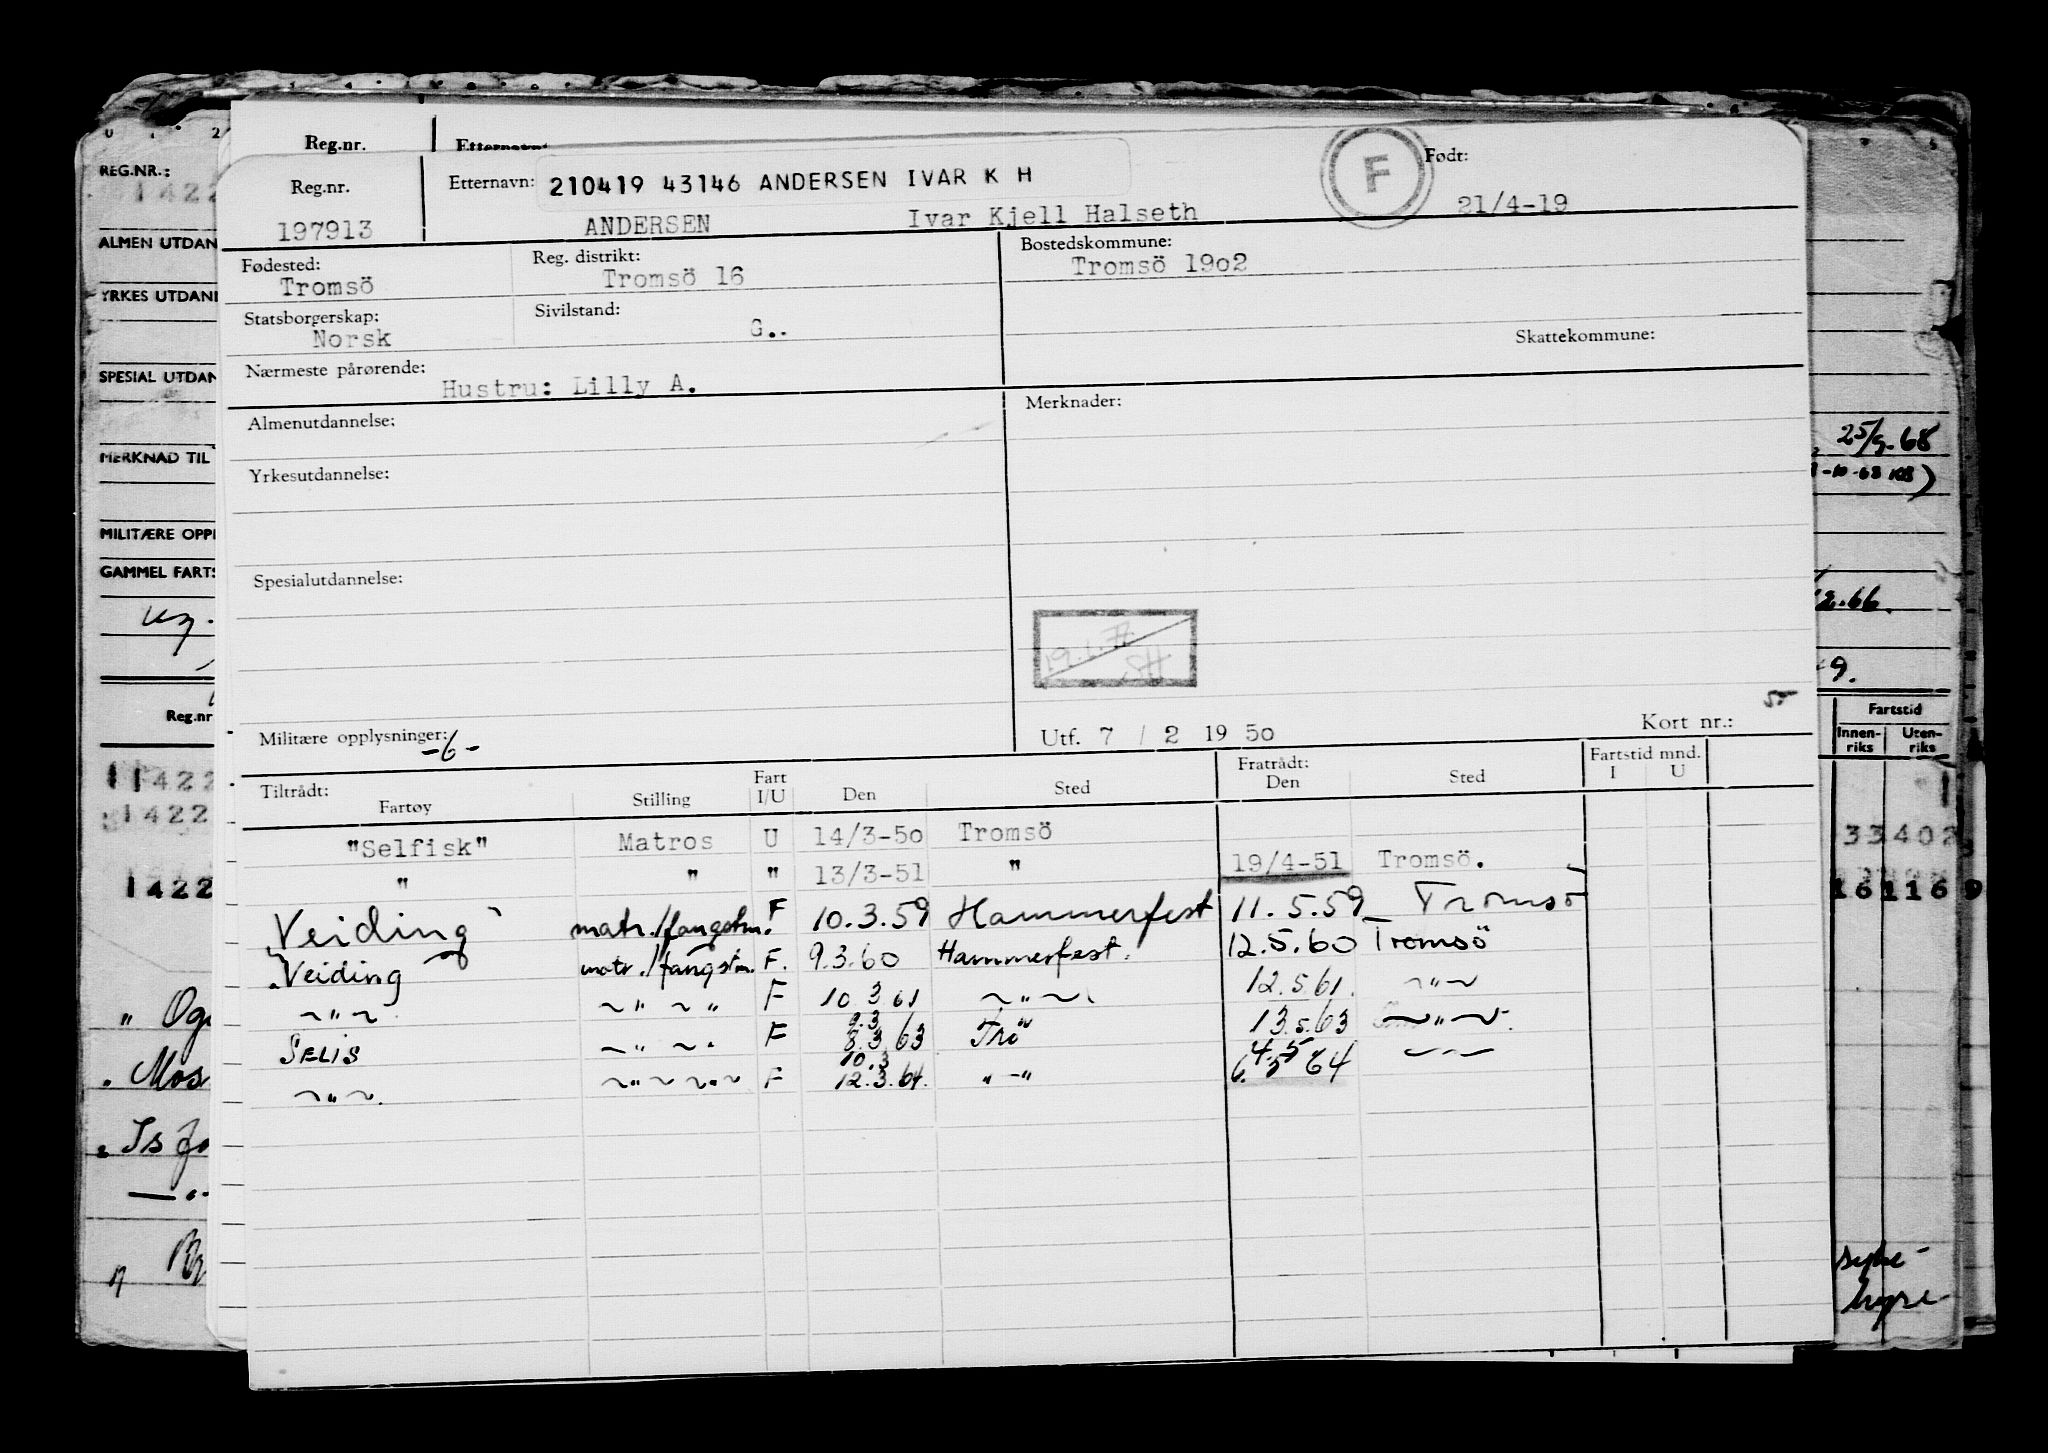 Reg.nr.
Etternavn:
REG.NR.:
1422
ALMEN UTDAN
YRKES UTDAN
SPESIAL UTDAN
MERKNAD TIL
MILITÆRE OPP
GAMMEL FARTS
Reg.nr
1422
1422
1422
Reg.nr. Etternavn: 210419 43146 ANDERSEN IVAR K H F Født:
197913 ANDERSEN Ivar Kjell Halseth 21/4-19
Fødested: Reg. distrikt: Bostedskommune:
Tromsö Tromsö 16 Tromsö 19o2
Statsborgerskap: Sivilstand: Skattekommune:
Norsk G..
Nærmeste pårørende:
Hustru: Lilly A.
Almenutdannelse: Merknader:
Yrkesutdannelse:
Spesialutdannelse:
SH
Militære opplysninger: -6- Utf. 7 / 2 19 5o Kort nr.:
Tiltrådt: Fart Fratrådt: Fartstid mnd.
Fartøy Stilling I/U Den Sted Den Sted I U
"Selfisk" Matros U 14/3-5o Tromsö
" " " 13/3-51 " 19/4-51 Tromsö.
Veiding matr./fangstm. F 10.3.59 Hammerfest 11.5.59 Tromsö
Veiding matr./fangstm. F. 9.3.60 Hammerfest. 12.5.60 Tromsö
~"~ ~"~" F 10 3 61 ~"~ 12.5.61. ~"~
9.3
SELIS ~"~. F 8.3 63 Trö 13.5.63 ~"~.
10.3 4.5
~"~. ~"~~"~ F 12.3.64. "-" 6.5 64 ~"~
25/9.68
Fartstid
Innen-riks Uten-riks
33402
161169
" Og
. Mos
Is fo
hyre